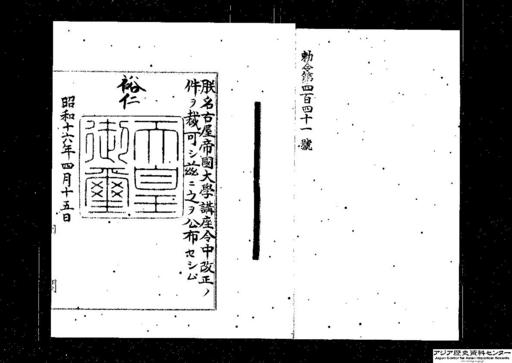 勅令第四百四十一號
朕名古屋帝國大學講座令中改正ノ
件ヲ裁可シ茲ニ之ヲ公布セシム
裕仁
天皇
御璽
昭和十六年四月十五日
アジア歴史資料センター
Japan Center for Asian Historical Records